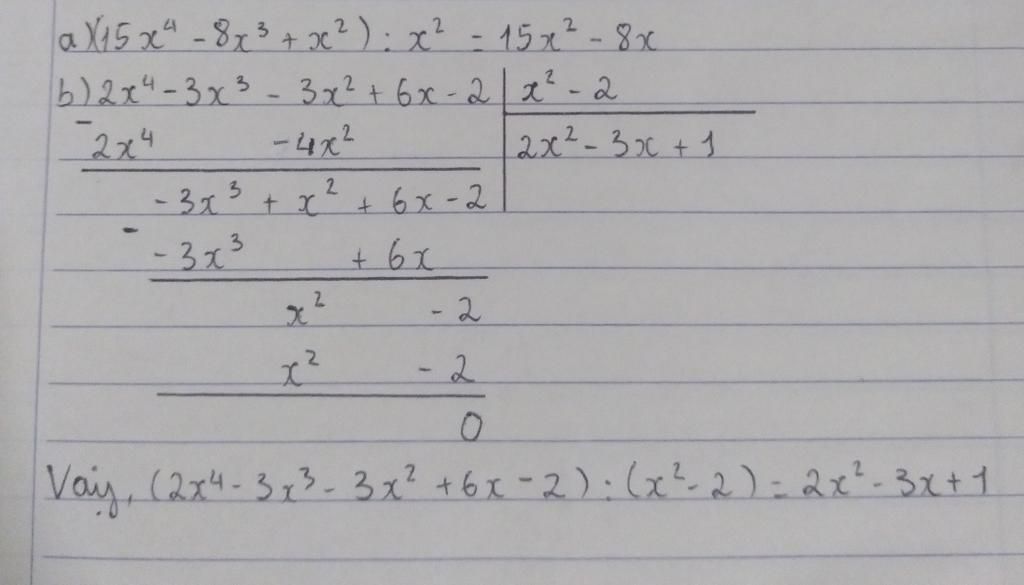 a) (15x⁴ - 8x³ + x²) : x² = 15x² - 8x
b) 2x⁴ - 3x³ - 3x² + 6x - 2 | x² - 2
- 2x⁴ - 4x² | 2x² - 3x + 1
- 3x³ + x² + 6x - 2
- - 3x³ + 6x
x² - 2
x² - 2
0
Vậy, (2x⁴ - 3x³ - 3x² + 6x - 2) : (x² - 2) = 2x² - 3x + 1